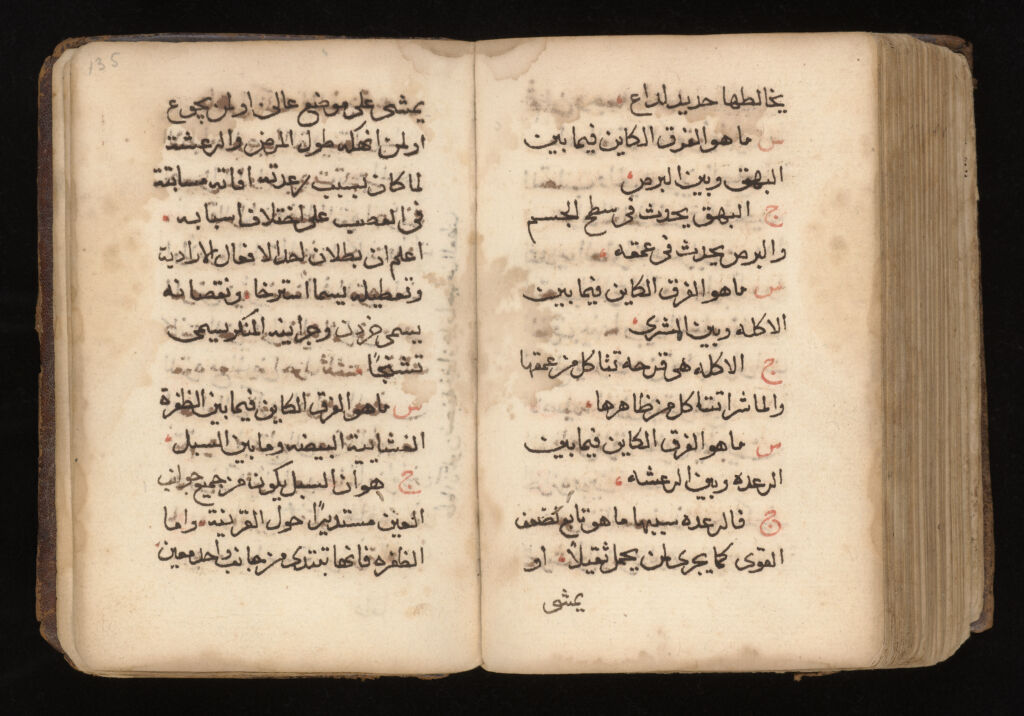 يخالطها حديد لداع
س ما هو الفرق الكاين فيما بين
البهق وبين البرص
ج البهق يحدث في سطح الجسم
والبرص يحدث في عمقه
س ما هو الفرق الكاين فيما بين
الاكله وبين
ج الاكله هي قرحه تتاكل من عمقها
والماشرا تتاكل من ظاهرها
س ما هو الفرق الكاين فيما بين
الرعده وبين الرعشه
ج فالرعده سببها ما هو تابع لضعف
القوى كما يجرى لمن يحمل ثقيلًا او
يمشى
135
يمشى على موضع عالى او لمن يجوع
او لمن انهكه طول المرض والرعشة
لما كان بسبب رعدته افاته سابقة
في العصب على اختلاف اسبابه
اعلم ان بطلان احد الافعال الارادية
وتعطيله يسما استرخا ونقصانه
يسمى خدر وجرايته المنكر يسمى
تشنجًا
س ما هو الفرق الكاين فيما بين الظفرة
الغشايية البيضه وما بين السبل
ج هو ان السبل يكون من جميع جوانب
العين مستديرًا حول القرنية واما
الظفره فانها تبتدى من جانب واحد معين